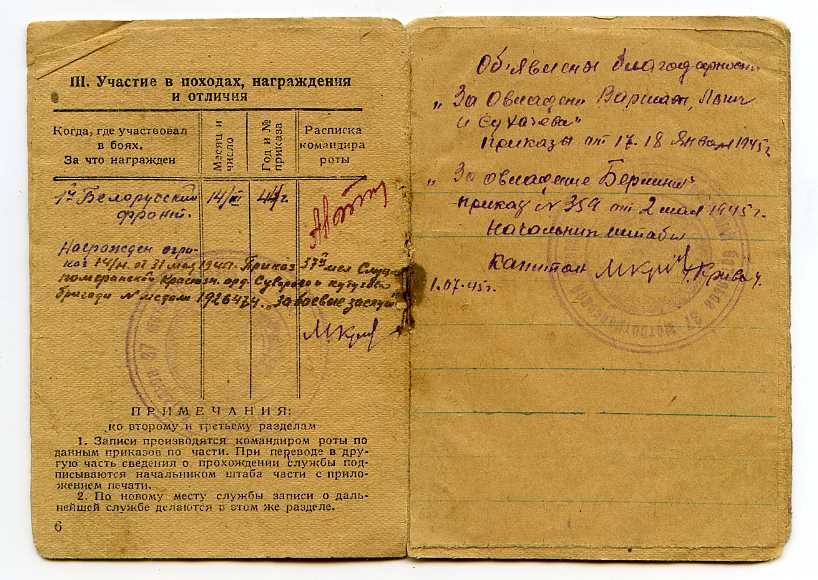 III. Участие в походах, награждения
и отличия
Когда, где участвовал
в боях.
За что награжден
Месяц и
число
Год и №
приказа
Расписка
командира
роты
1й Белорусский
фронт.
14/
44 г.
Награжден
от 31 мая 1945г. Приказ 37й мех
померанской Краснозн. орд. Суворова и Кутузова
бригады № медали 1926474 „За боевые заслуги"
ПРИМЕЧАНИЯ:
ко второму и третьему разделам
1. Записи производятся командиром роты по
данным приказов по части. При переводе в дру-
гую часть сведения о прохождении службы под-
писываются начальником штаба части с прило-
жением печати.
2. По новому месту службы записи о даль-
нейшей службе делаются в этом же разделе.
6
Объявлены благодарности
„За овладен Варшав,
и Сухачева"
Приказы от 17.18 Января 1945г
„За овладение Берлином"
приказ N 359 от 2 мая 1945г.
Начальник штаба
капитан
1.07.45г.